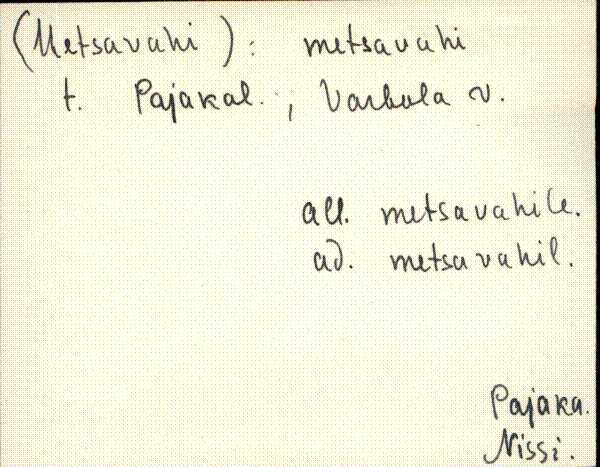 (Metsavahi): metsavahi
t. Pajakal., Varbola v.
all. metsavahile.
ad. metsavahil.
Pajaka.
Nissi.